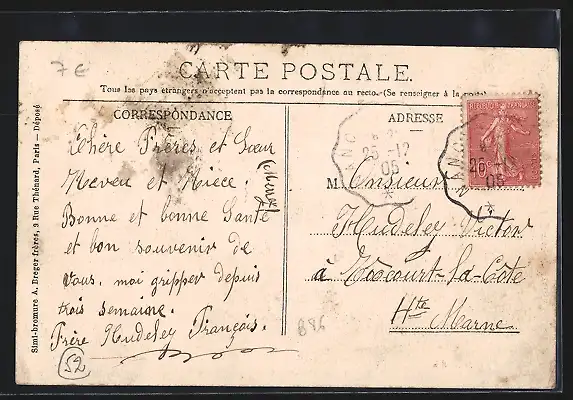 7 €
CARTE POSTALE.
Tous les pays étrangers n'acceptent pas la correspondance au recto.-(Se renseigner à la poste)
CORRESPONDANCE
Chère Frères et Sœur
Neveu et Nièce.
Bonne et bonne Santé
et bon souvenir de
vous. moi gripper depuis
trois semaine.
Frère Hudeley François.
52
Simi-bromure A. Breger frères, 9 Rue Thénard, Paris — Déposé
ADRESSE
REPUBLIQUE FRANÇAISE
10
25 -12
05
25 -12
05
Monsieur
Hudeley Victor
à Nocourt-la-Côte
Hte Marne
896